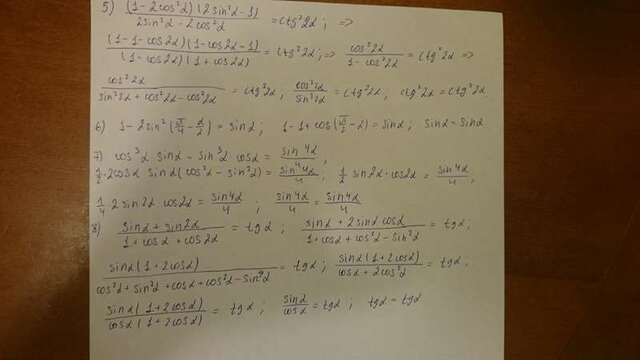 5) (1-2cos²α)(2sin²α-1) / 4sin²α·2cos²α = ctg²2α; =>
(1-1-cos2α)(1-cos2α-1) / (1-cos2α)(1+cos2α) = ctg²2α; => cos²2α / 1-cos²2α = ctg²2α =>
cos²2α / sin²2α+cos²2α-cos²2α = ctg²2α, cos²2α / sin²2α = ctg²2α, ctg²2α = ctg²2α.
6) 1-2sin²(π/4-α/2) = sinα; 1-1+cos(π/2-α) = sinα; sinα=sinα
7) cos³α sinα - sin³α cosα = sin4α/4;
1/2·2cosα·sinα(cos²α-sin²α) = sin4α/4, 1/2 sin2α·cos2α = sin4α/4;
1/4·2sin2α cos2α = sin4α/4; sin4α/4 = sin4α/4
8) sinα+sin2α / 1+cosα+cos2α = tgα; sinα+2sinαcosα / 1+cosα+cos²α-sin²α = tgα;
sinα(1+2cosα) / cos²α+sin²α+cosα+cos²α-sin²α = tgα; sinα(1+2cosα) / cosα+2cos²α = tgα;
sinα(1+2cosα) / cosα(1+2cosα) = tgα; sinα/cosα = tgα; tgα=tgα